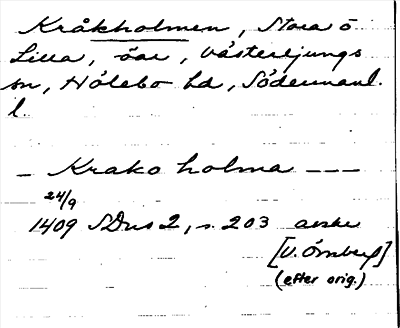 Kråkholmen, Stora o
Lilla, öar, Västerljungs
sn, Hölebo hd, Södermanl.
l.
— Krako holma ———
24/9
1409 SDns 2, s. 203 avskr
[V. Örnberg]
(efter orig.)